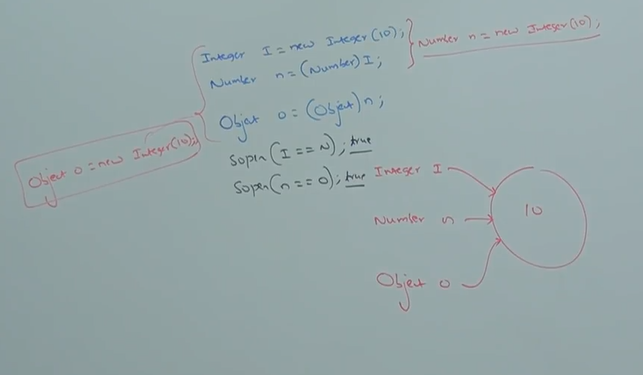 Integer I = new Integer(10);
Number n = (Number)I;
Number n = new Integer(10);
Object o = (Object)n;
Object o = new Integer(10);
Sopln(I == N); true
Sopln(n == O); true
Integer I
Number n
Object o
10